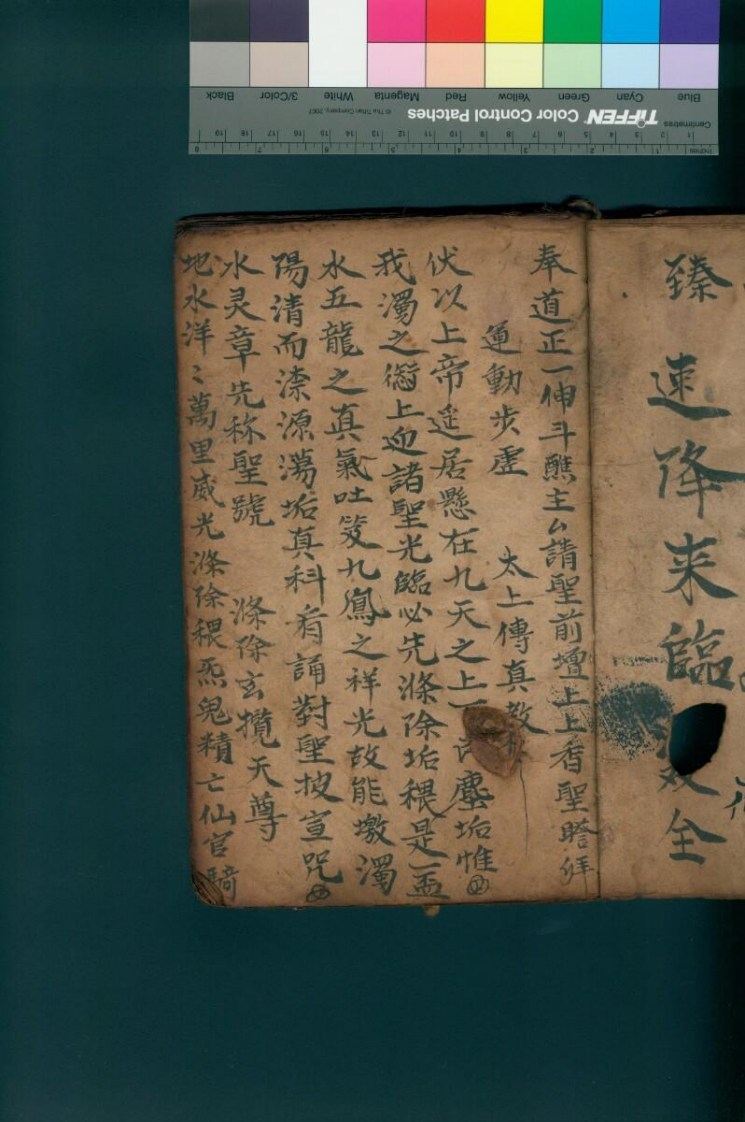 Blue Cyan Green Yellow Red Magenta White 3/Color Black
TIFFEN Color Control Patches © The Tiffen Company, 2007
Centimetres
Inches
臻
速降来臨
全
奉道正一伸斗醮主厶請聖前壇上上香聖 拜
運動步虛 太上傳真教
伏以上帝遥居懸在九天之上 塵垢惟
我濁之 上迎諸聖光臨必先滌除垢穢是一盃
水五龍之真氣吐笅九鳳之祥光故能墽濁
陽清而漆源蕩垢真科有誦對聖披宣咒
水灵章先称聖號 滌除玄攬天尊
地水洋〻萬里威光滌除穢炁鬼精亡仙官騎